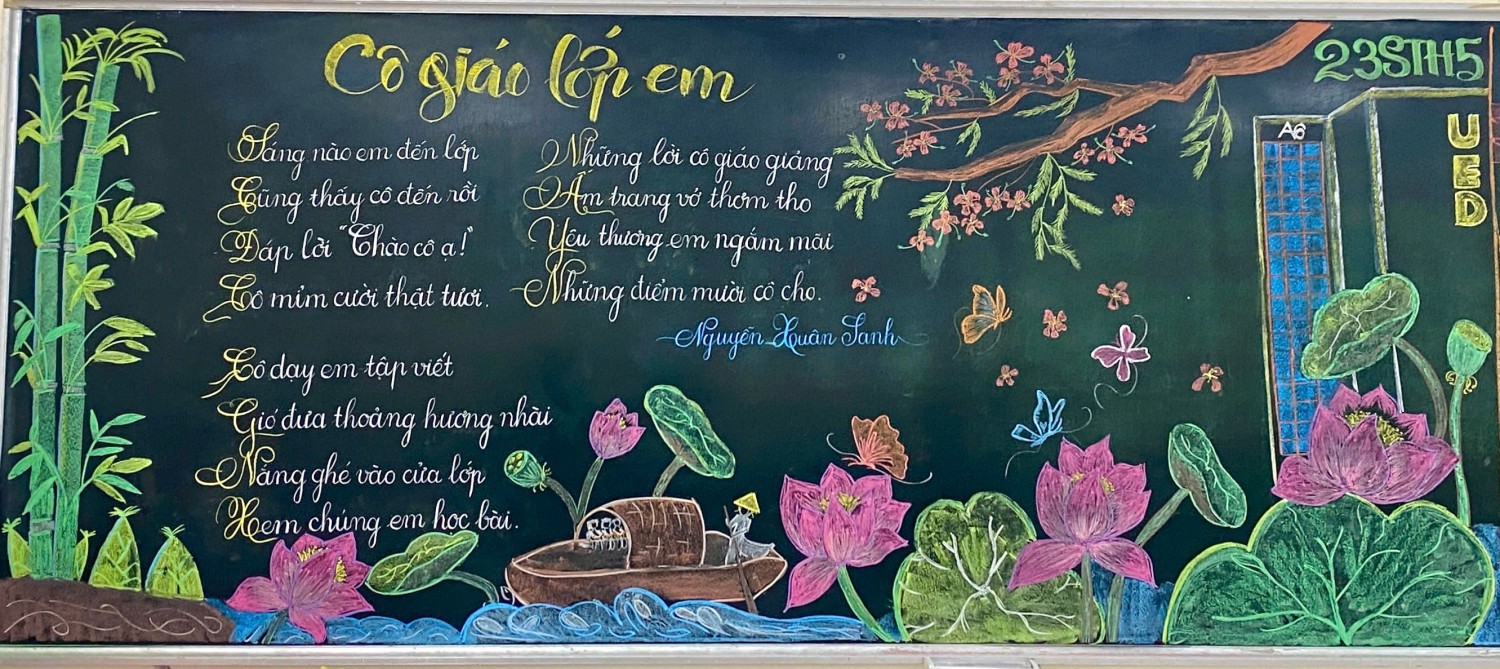 Cô giáo lớp em
Sáng nào em đến lớp
Cũng thấy cô đến rồi
Đáp lời "Chào cô ạ!"
Cô mỉm cười thật tươi.
Cô dạy em tập viết
Gió đưa thoảng hương nhài
Nắng ghé vào cửa lớp
Xem chúng em học bài.
Những lời cô giáo giảng
Ấm trang vở thơm tho
Yêu thương em ngắm mãi
Những điểm mười cô cho.
Nguyễn Xuân Sanh
23STH5
A6
UED